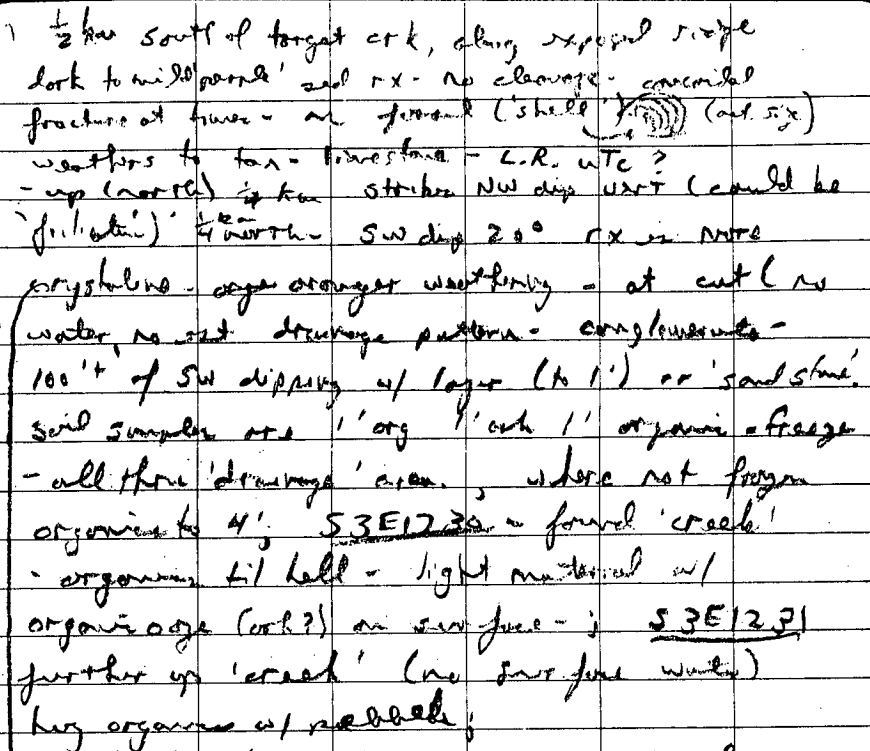 1/2 km south of target crk, along exposed ridge
dark to mild 'purple' sed rx - no cleavage - concoidal
fracture at times - an ('shell') (act. size)
weathers to tan - limestone - L.R. uTc ?
- up (north) 1/4 km strikes NW dip (could be
'foliation') 1/4 km north - SW dip 20° rx is more
crystaline - oranger weathering - at cut (no
water, no set drainage pattern - conglomerate -
100'+ of SW dipping w/ layer (to 1') or 'sandstone'.
soil samples are 1' org 1" ash 1' organic - freeze
- all thru 'drainage' area. ; where not frozen
organics to 4'; S3E1230 - found 'creek'
- organics til hell - light material w/
organic ooze (ash?) on surface - ; S3E1231
further up 'creek' (no surface water)
organics w/ pebbles;